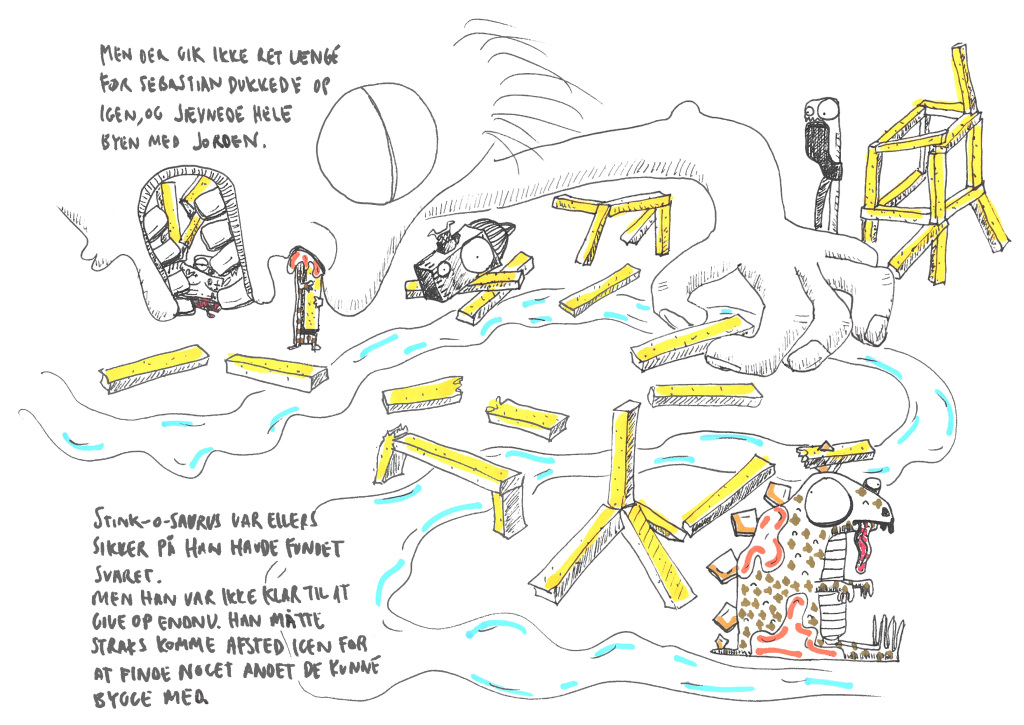 MEN DER GIK IKKE RET LÆNGE
FØR SEBASTIAN DUKKEDE OP
IGEN, OG JÆVNEDE HELE
BYEN MED JORDEN.
STINK-O-SAURUS VAR ELLERS
SIKKER PÅ HAN HAVDE FUNDET
SVARET.
MEN HAN VAR IKKE KLAR TIL AT
GIVE OP ENDNU. HAN MÅTTE
STRAKS KOMME AFSTED IGEN FOR
AT FINDE NOGET ANDET DE KUNNE
BYGGE MED.